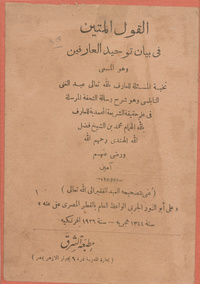 القول المتين
في بيان توحيد العارفين
وهو المسمى
نخبة المسئلة للعارف بالله تعالى عبد الغنى
النابلسى وهو شرح رسالة التحفة المرسلة
فى علم حقيقة الشريعة المحمدية للعارف
بالله الهمام محمد بن الشيخ فضل
الله الهندى رحمهم الله
ورضى عنهم
آمين
( عنى بتصحيحه العبد الفقير الى الله تعالى )
على أبو النور الجربى الواعظ العام بالقطر المصرى عفى عنه
سنة ١٣٤٤ هجريه — سنة ١٩٢٦ افرنكيه
مطبعة الشرق